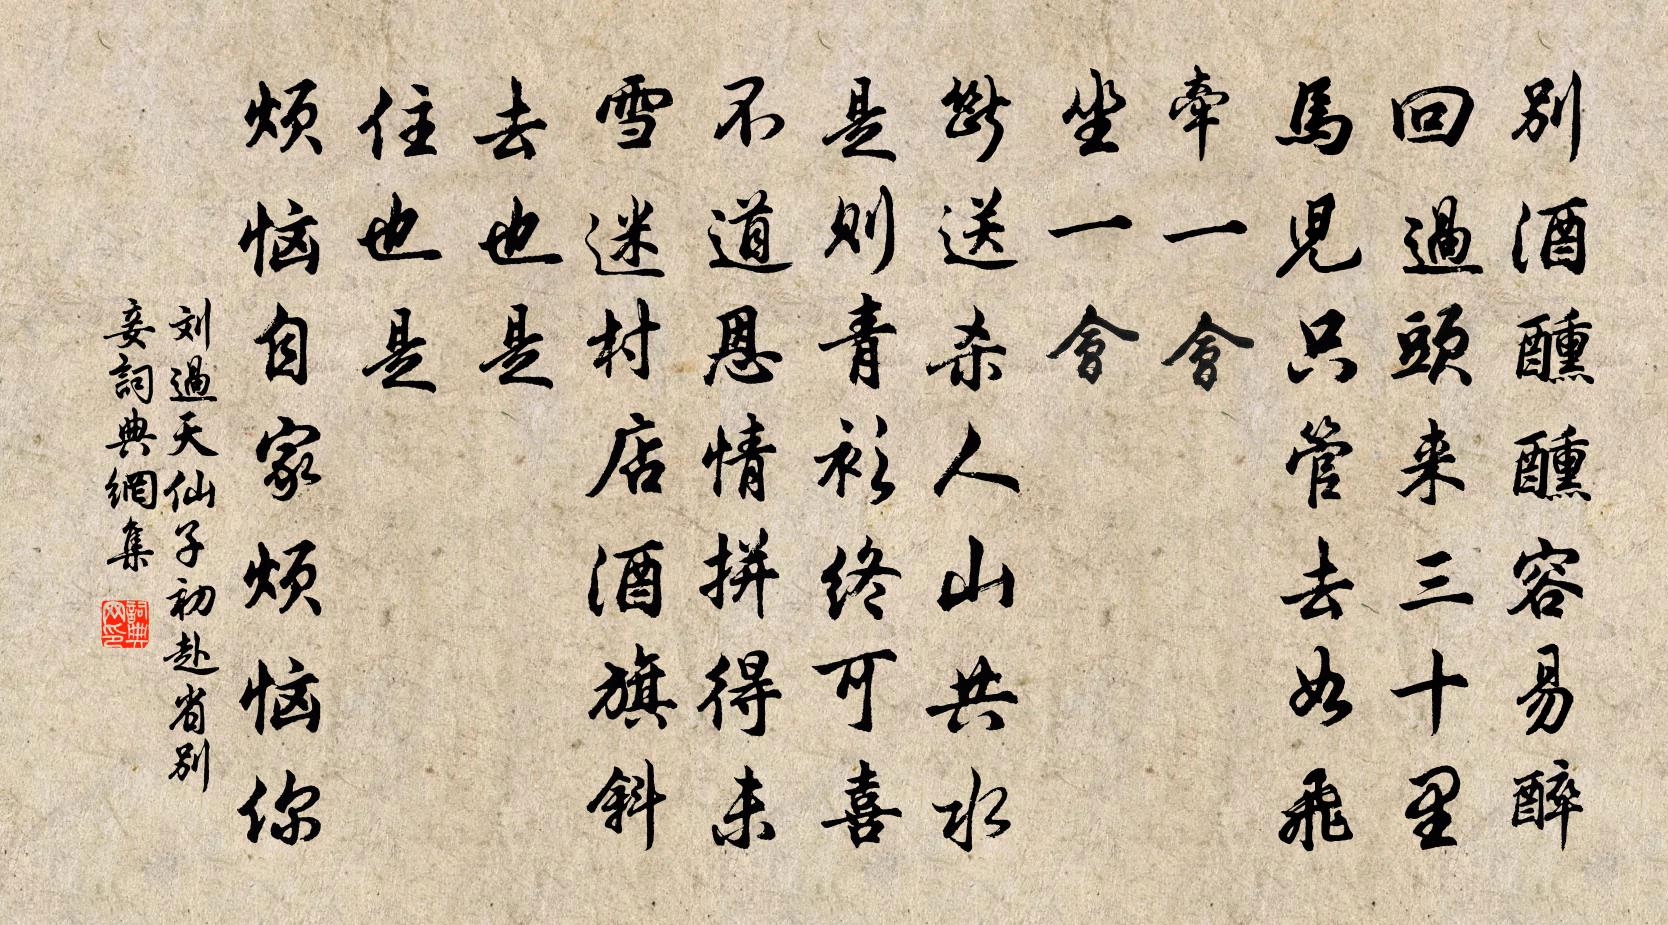 別酒醺醺容易醉
回過頭来三十里
馬兒只管去如飛
牽一會
坐一會
斷送杀人山共水
是則青衫终可喜
不道恩情拼得未
雪迷村店酒旗斜
去也是
住也是
烦恼自家烦恼你
刘過天仙子初赴省别
妾詞典網集
詞典网印